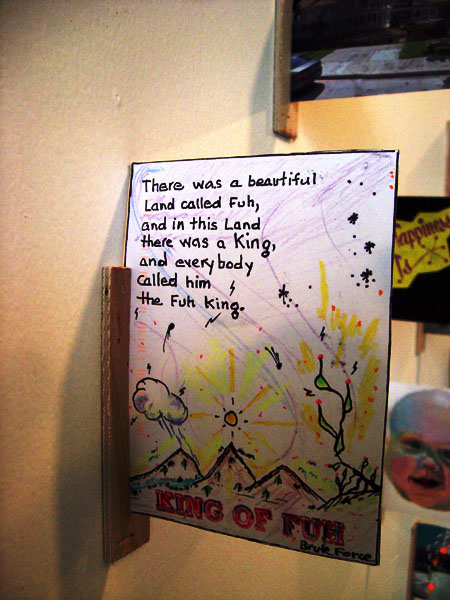 There was a beautiful
Land called Fuh,
and in this Land
there was a King,
and everybody
called him
the Fuh king.
KING OF FUH
Brute Force
Happiness
Is